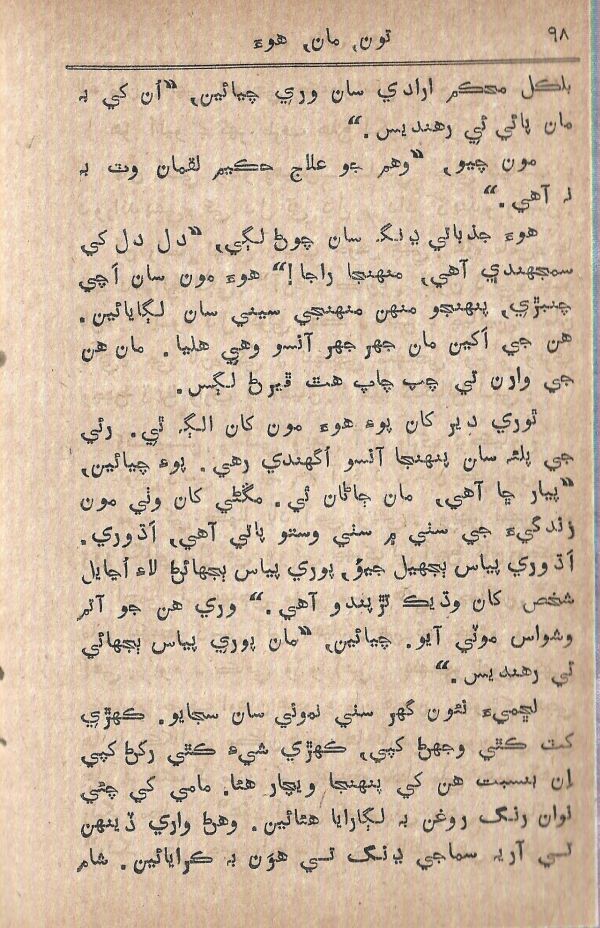 ۹۸
تون، مان، هوءَ
بلڪل محڪم ارادي سان وري چيائين، ”اُن کي به
مان پائي ئي رهنديس.“
مون چيو، ”وهم جو علاج حڪيم لقمان وٽ به
نہ آهي.“
هوءَ جذباتي ڍنگ سان چوڻ لڳي، ”دل دل کي
سمجهندي آهي، منهنجا راجا!“ هوءَ مون سان اَچي
چنبڙي، پنهنجو منهن منهنجي سيني سان لڳايائين.
هن جي اَکين مان جهر جهر آنسو وهي هليا. مان هن
جي وارن تي چپ چاپ هٿ ڦيرڻ لڳس.
ٿوري دير کان پوءِ هوءَ مون کان الڳ ٿي. رئي
جي پلئہ سان پنهنجا آنسو اُگهندي رهي. پوءِ چيائين،
”پيار ڇا آهي، مان ڄاڻان ٿي. مڱڻي کان وٺي مون
زندگيءَ جي سٺي ۾ سٺي وستو پاتي آهي، اَڌوري.
اَڌوري پياس ٻجهيل جيؤ، پوري پياس ٻجهائڻ لاءِ اُڃايل
شخص کان وڌيڪ تڙپندو آهي.“ وري هن جو آتم
وشواس موٽي آيو. چيائين، ”مان پوري پياس ٻجهائي
ئي رهنديس.“
لڇميءَ نئون گهر سٺي نموني سان سجايو. ڪهڙي
کٽ ڪٿي وجهڻ کپي، ڪهڙي شيءَ ڪٿي رکڻ کپي
اِن بنسبت هن کي پنهنجا ويچار هئا. مامي کي چئي
نوان رنگ روغن به لڳارايا هئائين. وهڻ واري ڏينهن
تي آريہ سماجي ڍنگ سي هوَن به ڪرايائين. شام